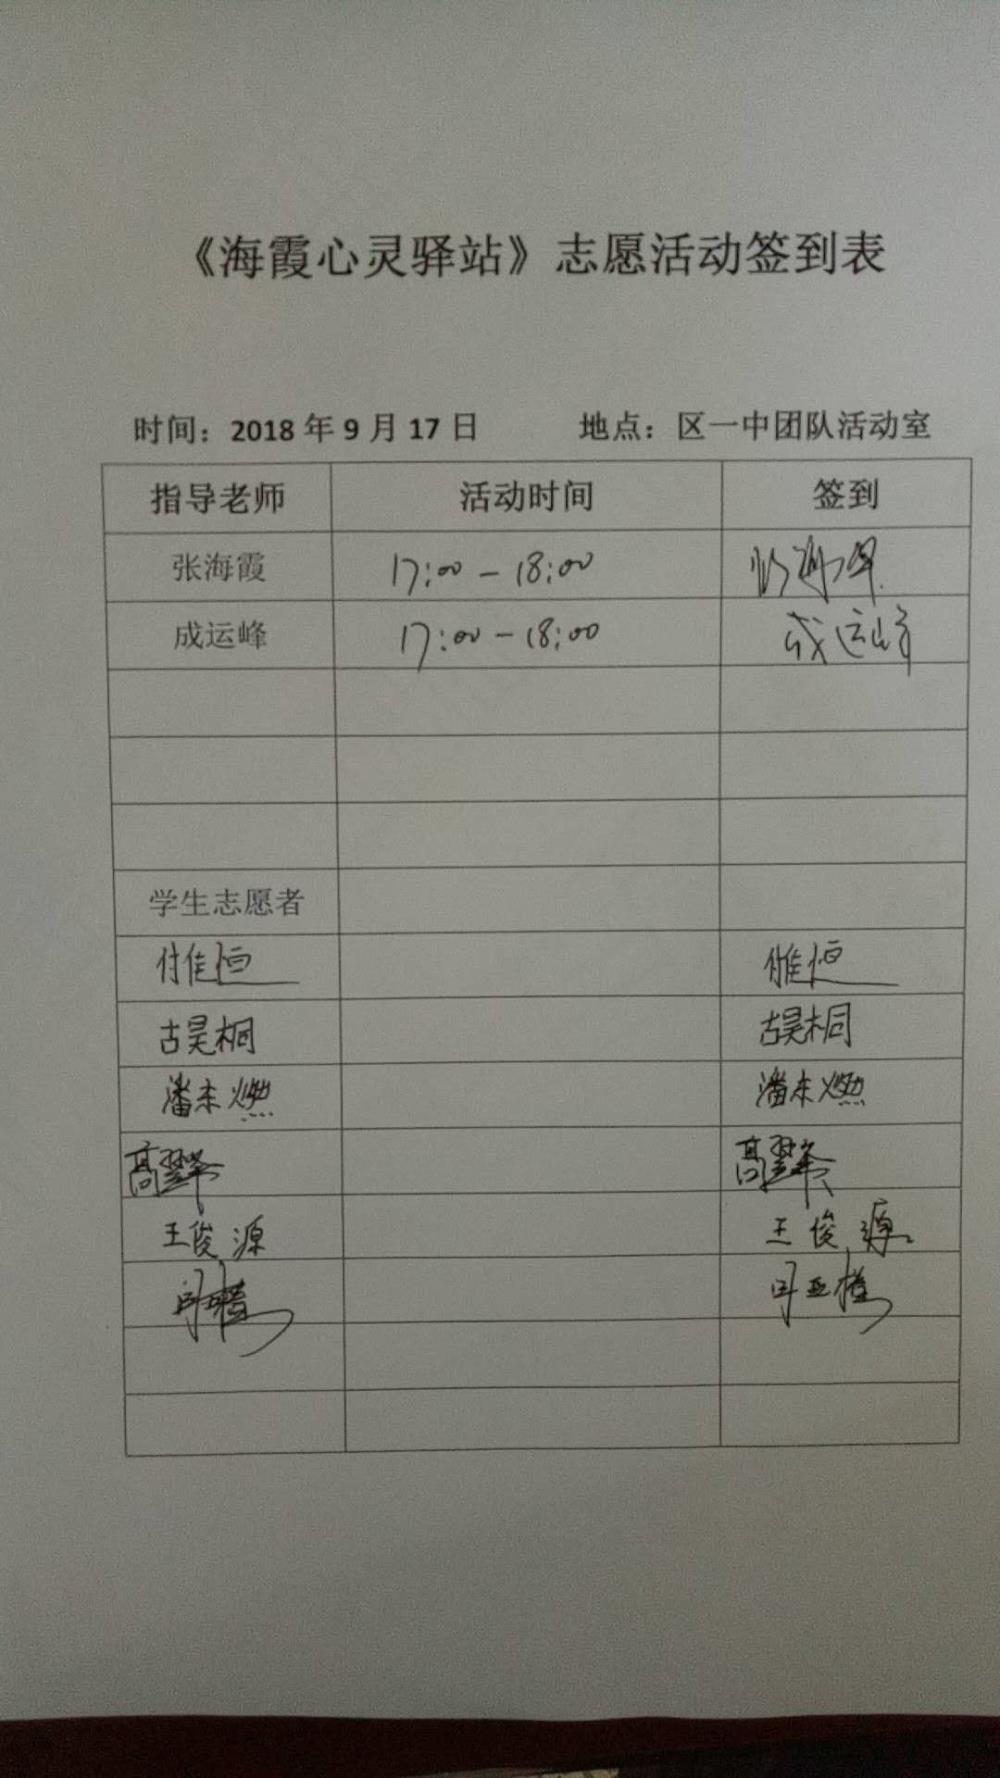 《海霞心灵驿站》志愿活动签到表
时间：2018年9月17日 地点：区一中团队活动室
指导老师 活动时间 签到
张海霞 17:00-18:00
成运峰 17:00-18:00 成运峰
学生志愿者
付佳恒 付佳恒
古昊桐 古昊桐
潘未燃 潘未燃
高 高
王俊源 王俊源